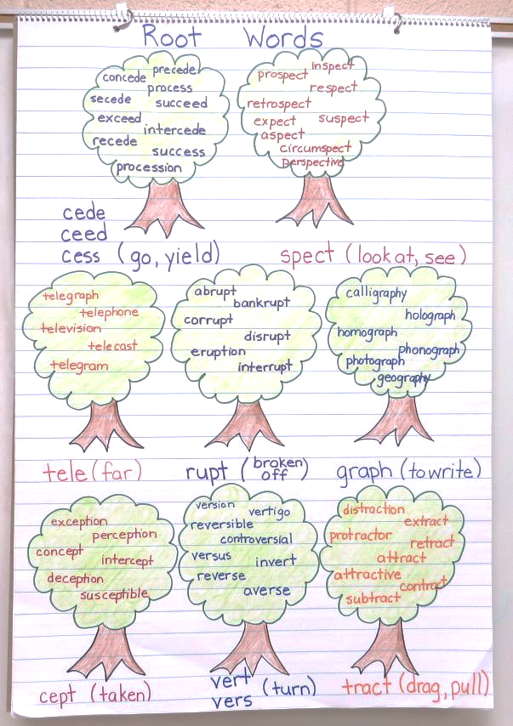 Root Words
concede
precede
process
secede
succeed
exceed
intercede
recede
success
procession
cede
ceed
cess (go, yield)
inspect
prospect
respect
retrospect
expect
suspect
aspect
circumspect
perspective
spect (look at, see)
telegraph
telephone
television
telecast
telegram
tele (far)
abrupt
bankrupt
corrupt
disrupt
eruption
interrupt
rupt (broken off)
calligraphy
holograph
homograph
phonograph
photograph
geography
graph (to write)
exception
perception
concept
intercept
deception
susceptible
cept (taken)
version
vertigo
reversible
controversial
versus
invert
reverse
averse
vert
vers (turn)
distraction
extract
protractor
retract
attract
attractive
contract
subtract
tract (drag, pull)